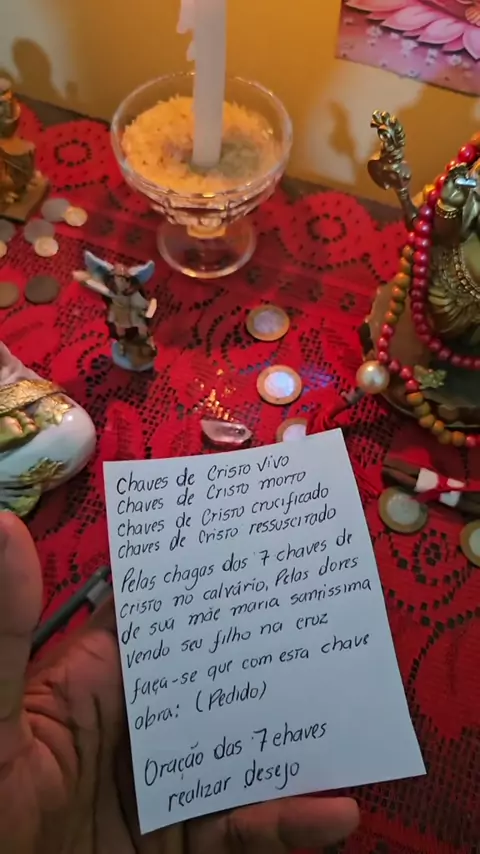 Chaves de Cristo vivo
chaves de Cristo morto
chaves de Cristo crucificado
chaves de Cristo ressuscitado
Pelas chagas das 7 chaves de
cristo no calvário, Pelas dores
de sua mãe maria santissima
vendo seu filho na cruz
faça-se que com esta chave
obra: (Pedido)
Oração das 7 chaves
realizar desejo